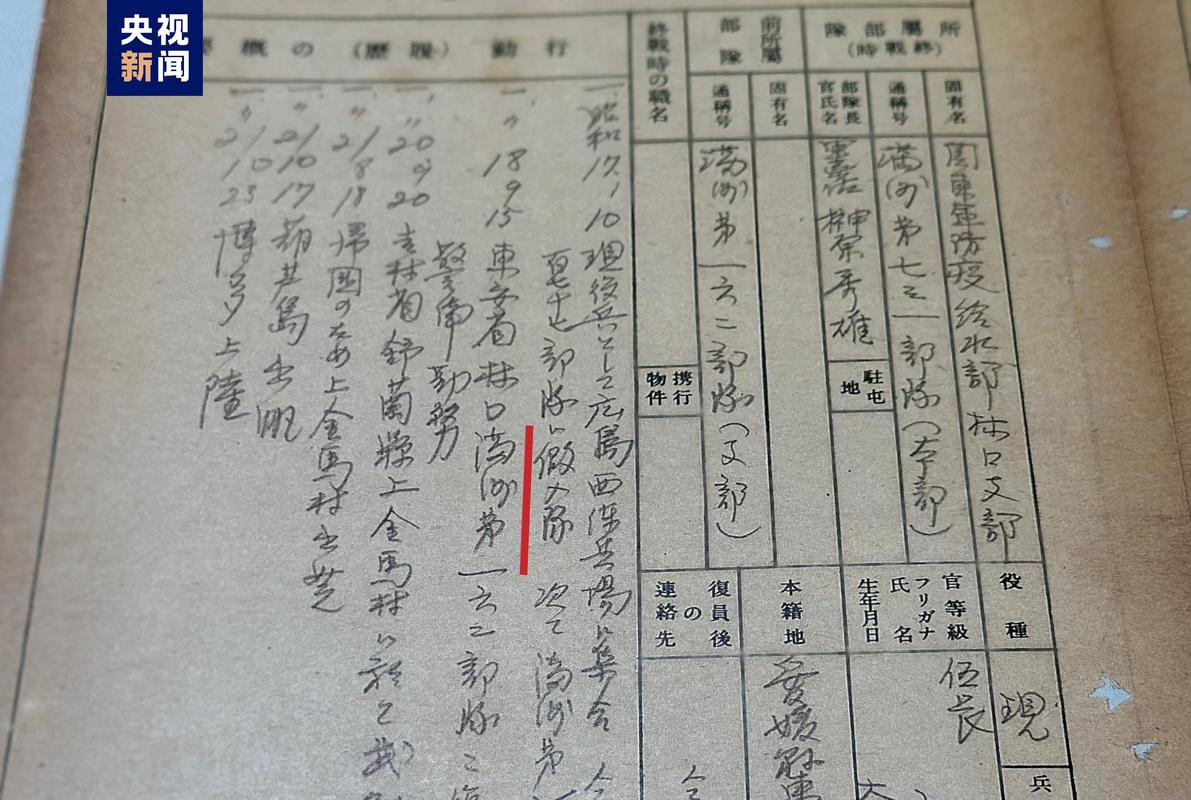 央视
新闻
所屬部隊
(終戰時)
固有名
関東軍防疫給水部林口支部
通稱号
満洲第七三一部隊(本部)
部隊長
官氏名
榊原秀雄
駐屯
地
前所屬
部隊
固有名
通稱号
満洲第一六二部隊(支部)
終戰時の職名
携行
物件
行動(履歷)の概要
一、昭和17、1、10 現役兵として広島西練兵場に集合
部隊に仮入隊 次で満洲第
一、〃 18 9 15 東安省林口満洲第一六二部隊ニ
警備勤務
一、〃 20 9 20 吉林省舒蘭縣上金馬村に於て武
一、〃 21 8 18 帰国のため上金馬村出発
一、〃 21 10 17 葫芦島出帆
一、〃 21 10 23 博多上陸
役種
現
兵
官等級
フリガナ
氏名
生年月日
伍長
本籍地
愛媛縣
復員後
の
連絡先